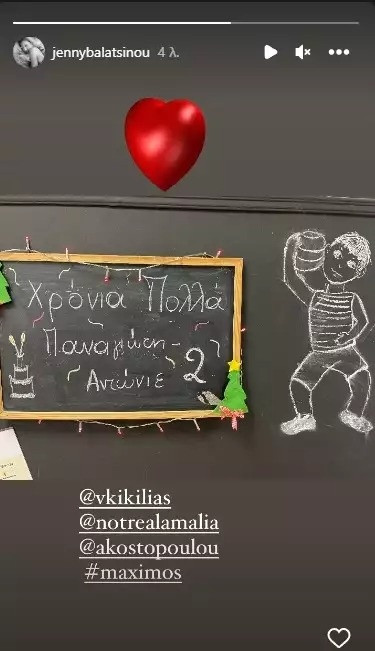 jennybalatsinou 4 λ.
Χρόνια Πολλά
Παναγιώτη-
Αντώνιε 2
@vkikilias
@notrealamalia
@akostopoulou
#maximos